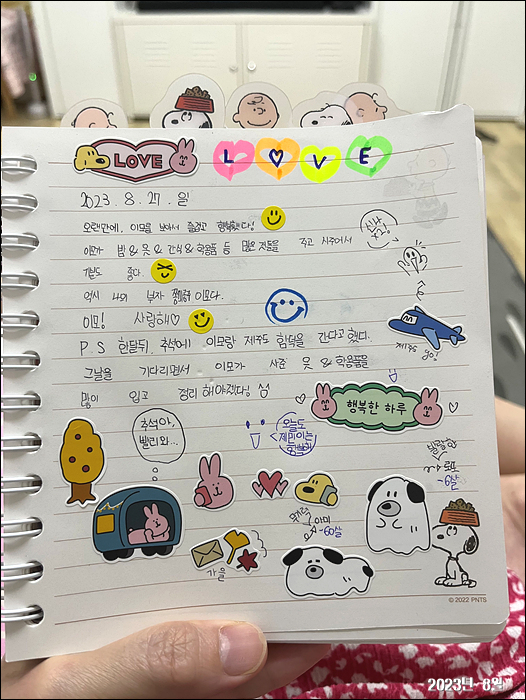 LOVE
L ♡ V E
2023. 8. 27. 일
오랜만에, 이모를 보아서 즐겁고 행복했다!
이모가 밥 & 옷 & 간식 & 학용품 등 많은 것들을 주고 사주어서
신나고
기분도 좋다.
역시 나의 부자 이모다.
이모! 사랑해♡
P.S 한달뒤, 추석에 이모랑 제주도 함덕을 간다고 했다.
제주 go!
그날을 기다리면서 이모가 사준 옷 & 학용품을
많이 입고 정리 해야겠다!
행복한 하루
추석아,
빨리와...
오늘도
제민이는
로또
~6살
아미
~60살
가을
© 2022 PNTS
2023년 8월